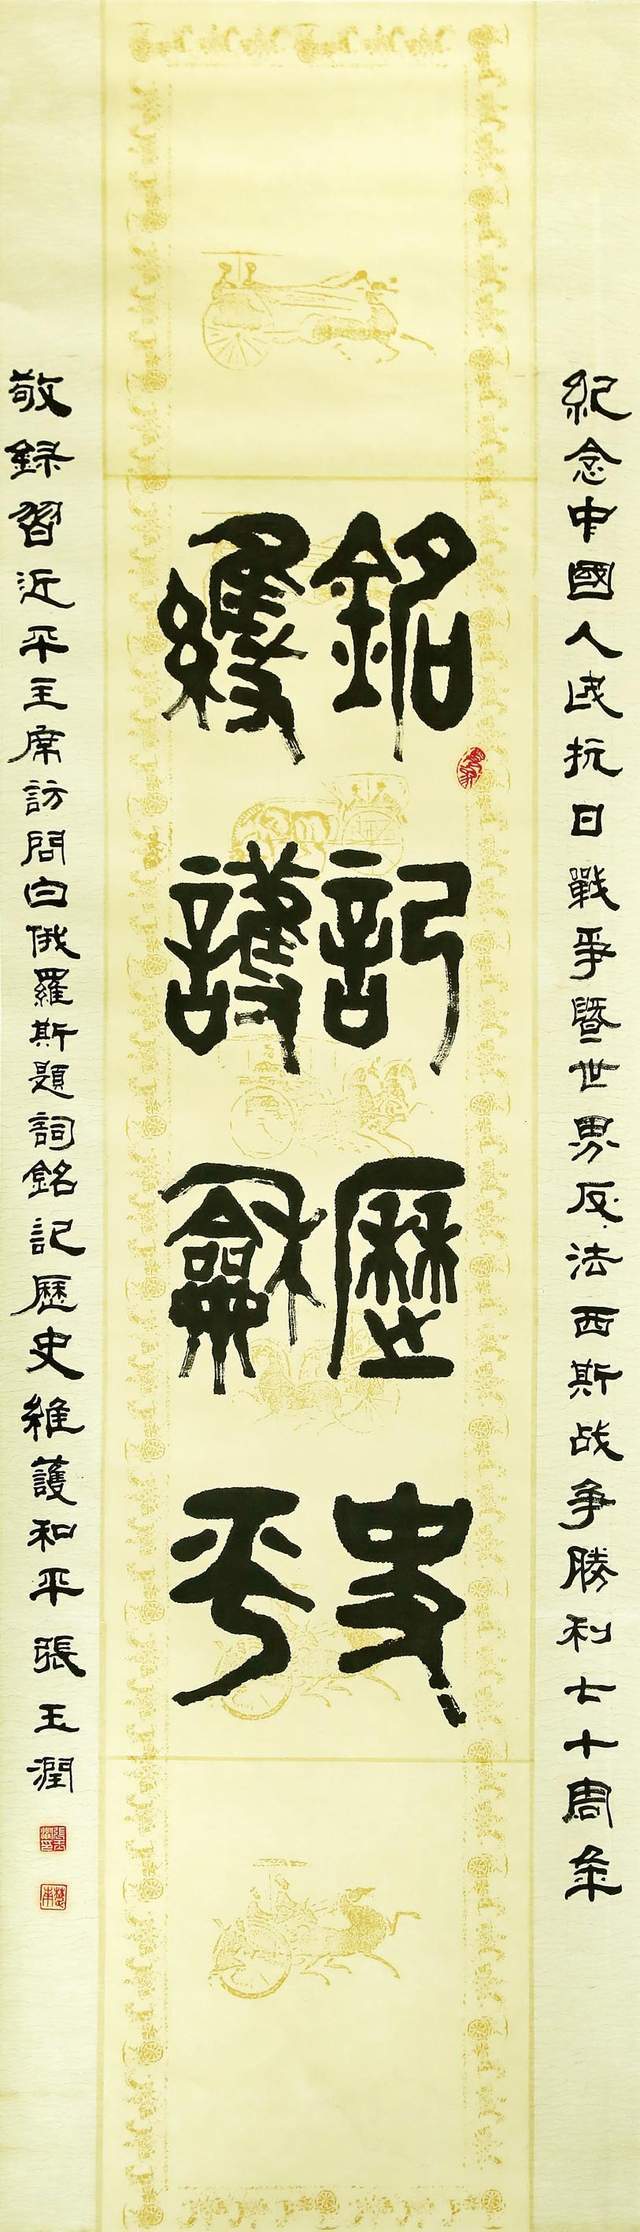 紀念中國人民抗日戰爭暨世界反法西斯战争勝利七十周年
銘記歷史
維護龢平
敬録習近平主席訪問白俄羅斯題詞銘記歷史維護和平張玉潤